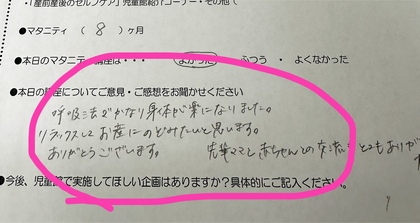 ・「産前産後のセルフケア」児童館紹介コーナー・その他（
●マタニティ（ 8 ）ヶ月
●本日のマタニ 講座は… よかった ・ ふつう ・ よくなかった
●本日の講座についてご意見・ご感想をお聞かせください
呼吸法でかなり身体が楽になりました。
リラックスしてお産にのぞみたいと思います。
ありがとうございます。 先輩ママと赤ちゃんとの交流 とてもありが
●今後、児童館で実施してほしい企画はありますか？具体的にご記入ください。